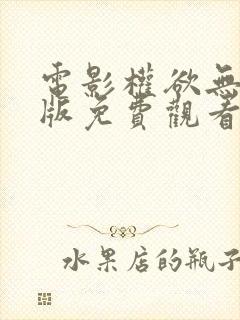 電影權欲無
版免費觀看
水果店的瓶子